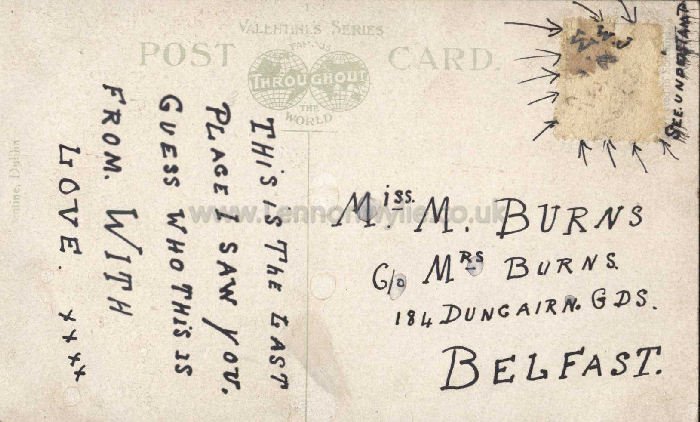 VALENTINE'S SERIES
POST CARD.
FAMOUS
THROUGHOUT
THE
WORLD
SEE. UNDER STAMP
THIS IS THE LAST
PLACE I SAW YOU.
GUESS WHO THIS IS
FROM. WITH
LOVE. xxxx
Miss. M. BURNS
C/o MRS BURNS.
184 DUNGAIRN. GDS.
BELFAST.
www.LennonWylie.co.uk
Dublin